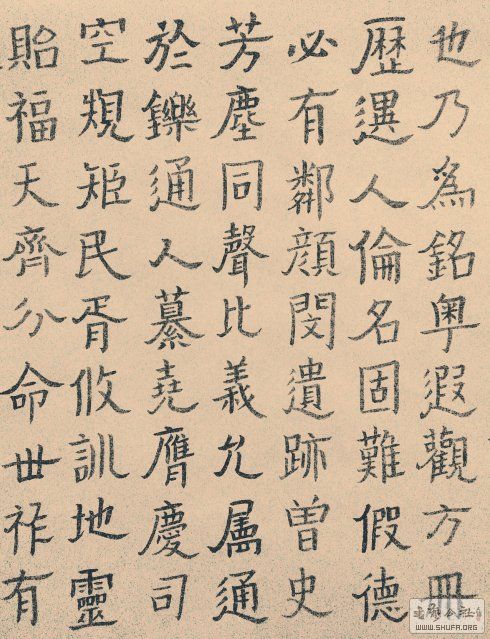 也乃為銘粵遐觀方冊
歷選人倫名固難假德
必有鄰顏閔遺跡曾史
芳塵同聲比義允屬通
於鑠通人纂堯膺慶司
空規矩民胥攸訓地靈
貽福天齊分命世祚有
WWW.SHUFA.ORG